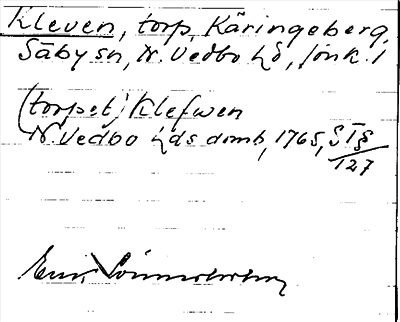 Kleven, torp, Käringeberg,
Säby sn, N. Vedbo hd, Jönk. l
(torpet) Klefwen
N. Vedbo hds domb, 1765, § Tg
127